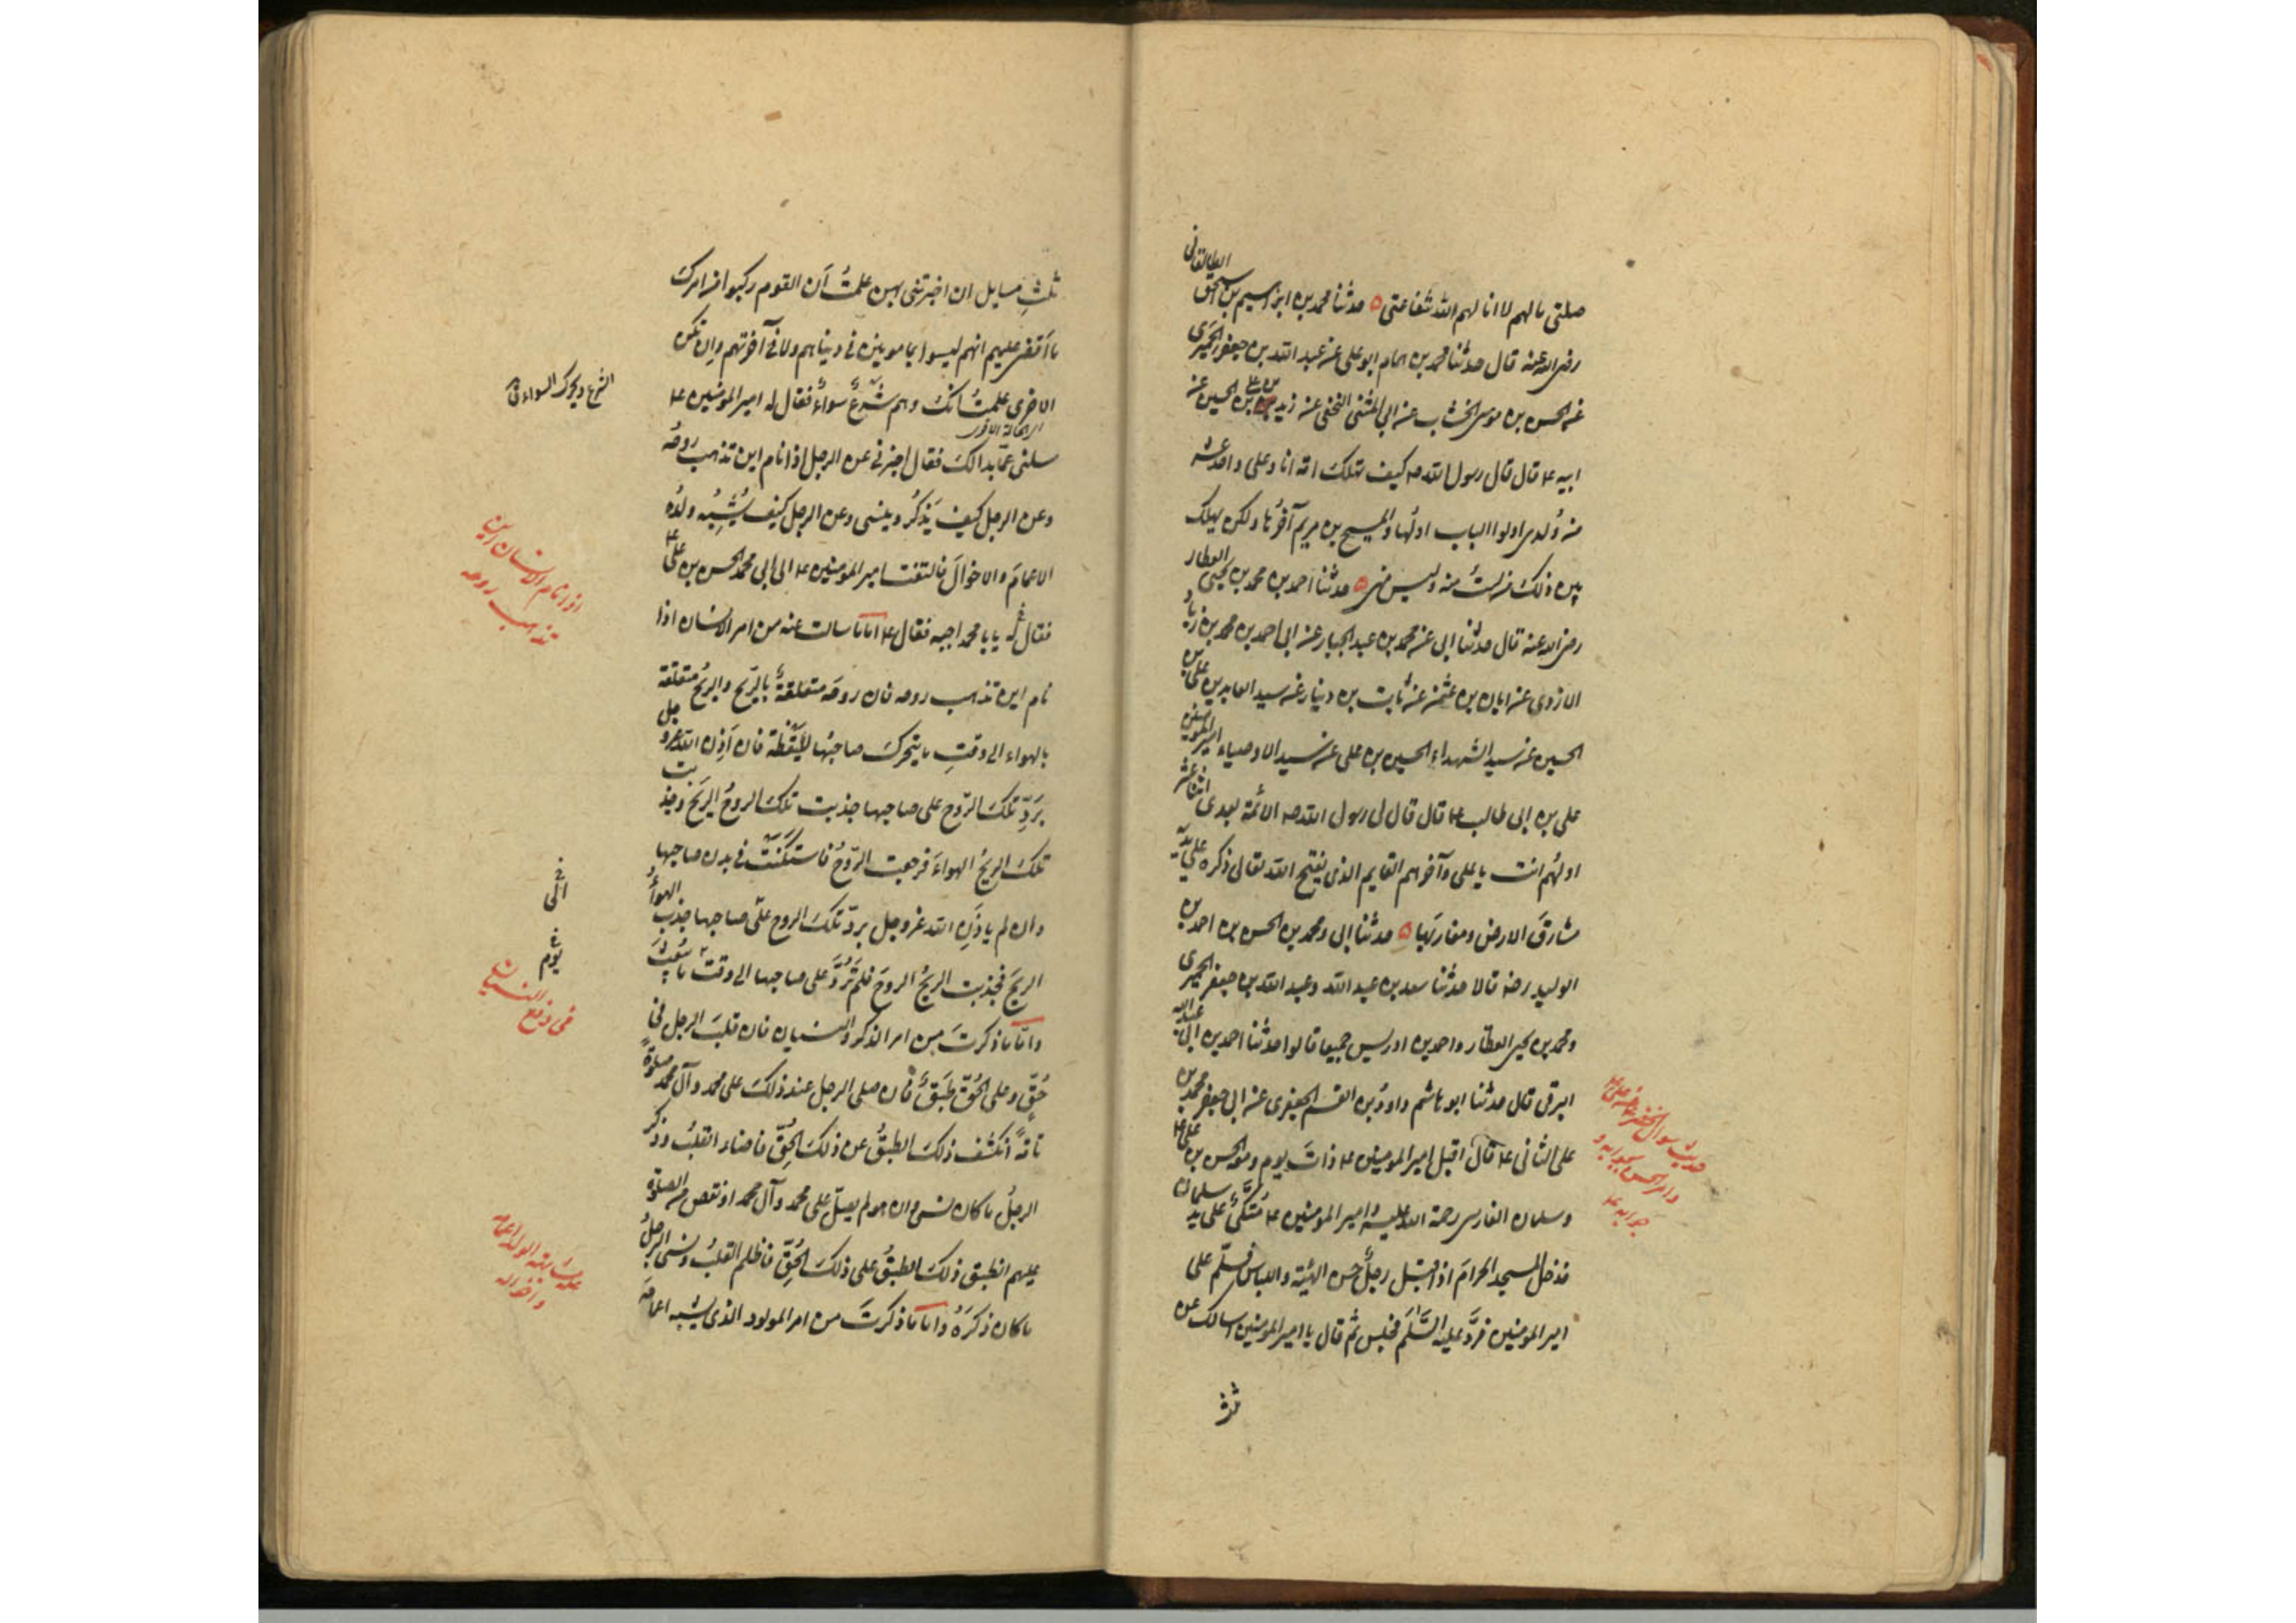 صلتی ما لهم لا انا لهم الله شفاعتی ه حدثنا محمد بن ابراهیم بن اسحق الطالقانی
رضی الله عنه قال حدثنا محمد بن همام ابو علی عن عبد الله بن جعفر الحمیری
عن الحسن بن موسی الخشاب عن ابی المثنی النخعی عن زید بن علی بن الحسین عن
ابیه ع قال قال رسول الله ص کیف تهلک امة انا وعلی واحد عشر
من ولدی اولوا الالباب اولها والمسیح بن مریم آخرها ولکن یهلک
بین ذلک من لست منه ولیس منی ه حدثنا احمد بن محمد بن یحیی العطار
رضی الله عنه قال حدثنا ابی عن محمد بن عبد الجبار عن ابی احمد بن محمد بن زیاد
الازدی عن ابان بن عثمن عن ثابت بن دینار عن سید العابدین علی بن
الحسین عن سید الشهداء الحسین بن علی عن سید الاوصیاء امیر المومنین
علی بن ابی طالب ع قال قال لی رسول الله ص الائمة بعدی اثنا عشر
اولهم انت یا علی وآخرهم القایم الذی یفتح الله تعالی ذکره علی یدیه
مشارق الارض ومغاربها ه حدثنا ابی ومحمد بن الحسن بن احمد بن
الولید رضه قالا حدثنا سعد بن عبد الله وعبد الله بن جعفر الحمیری
ومحمد بن یحیی العطار واحمد بن ادریس جمیعا قالوا حدثنا احمد بن ابی عبد الله
البرقی قال حدثنا ابو هاشم داود بن القسم الجعفری عن ابی جعفر محمد بن
علی الثانی ع قال اقبل امیر المومنین ع ذات یوم ومعه الحسن بن علی ع
وسلمان الفارسی رحمة الله علیه وامیر المومنین ع متکئ علی ید سلمان
فدخل المسجد الحرام اذ اقبل رجل حسن الهیئة واللباس فسلم علی
امیر المومنین فرد علیه السلم فجلس ثم قال یا امیر المومنین اسالک عن
ثلث
حدیث سوال الخضر عن علی ع
وامر الحسن بجوابه و
جوابه ع
ثلث مسایل ان اخبرتنی بهن علمت ان القوم رکبوا من امرک
ما اقضی علیهم انهم لیسوا بمامونین فی دنیاهم ولا فی آخرتهم وان تکن
الاخری علمت انک وهم شرع سواء فقال له امیر المومنین ع
سلنی عما بدا لک فقال اخبرنی عن الرجل اذا نام این تذهب روحه
وعن الرجل کیف یذکر وینسی وعن الرجل کیف یشبه ولده
الاعمام والاخوال فالتفت امیر المومنین ع الی ابی محمد الحسن بن علی ع
فقال له یا با محمد اجبه فقال ع اما ما سالت عنه من امر الانسان اذا
نام این تذهب روحه فان روحه متعلقة بالریح والریح متعلقة
بالهواء الی وقت ما یتحرک صاحبها للیقظة فان اذن الله عز و جل
برد تلک الروح علی صاحبها جذبت تلک الروح الریح وجذبت
تلک الریح الهواء فرجعت الروح فاستکنت فی بدن صاحبها
وان لم یاذن الله عز وجل برد تلک الروح علی صاحبها جذب الهواء
الریح فجذبت الریح الروح فلم ترد علی صاحبها الی وقت ما یبعث
واما ما ذکرت من امر الذکر والنسیان فان قلب الرجل فی
حق وعلی الحق طبق فان صلی الرجل عند ذلک علی محمد وآل محمد صلوة
تامة انکشف ذلک الطبق عن ذلک الحق فاضاء القلب وذکر
الرجل ما کان نسی وان هو لم یصل علی محمد وآل محمد او نقص من الصلوة
علیهم انطبق ذلک الطبق علی ذلک الحق فاظلم القلب ونسی الرجل
ما کان ذکره واما ما ذکرت من امر المولود الذی یشبه اعمامه
اذا نام الانسان این
تذهب روحه
الی
یوم
فی رفع النسیان
علة شباهة الولد اعمامه
واخواله